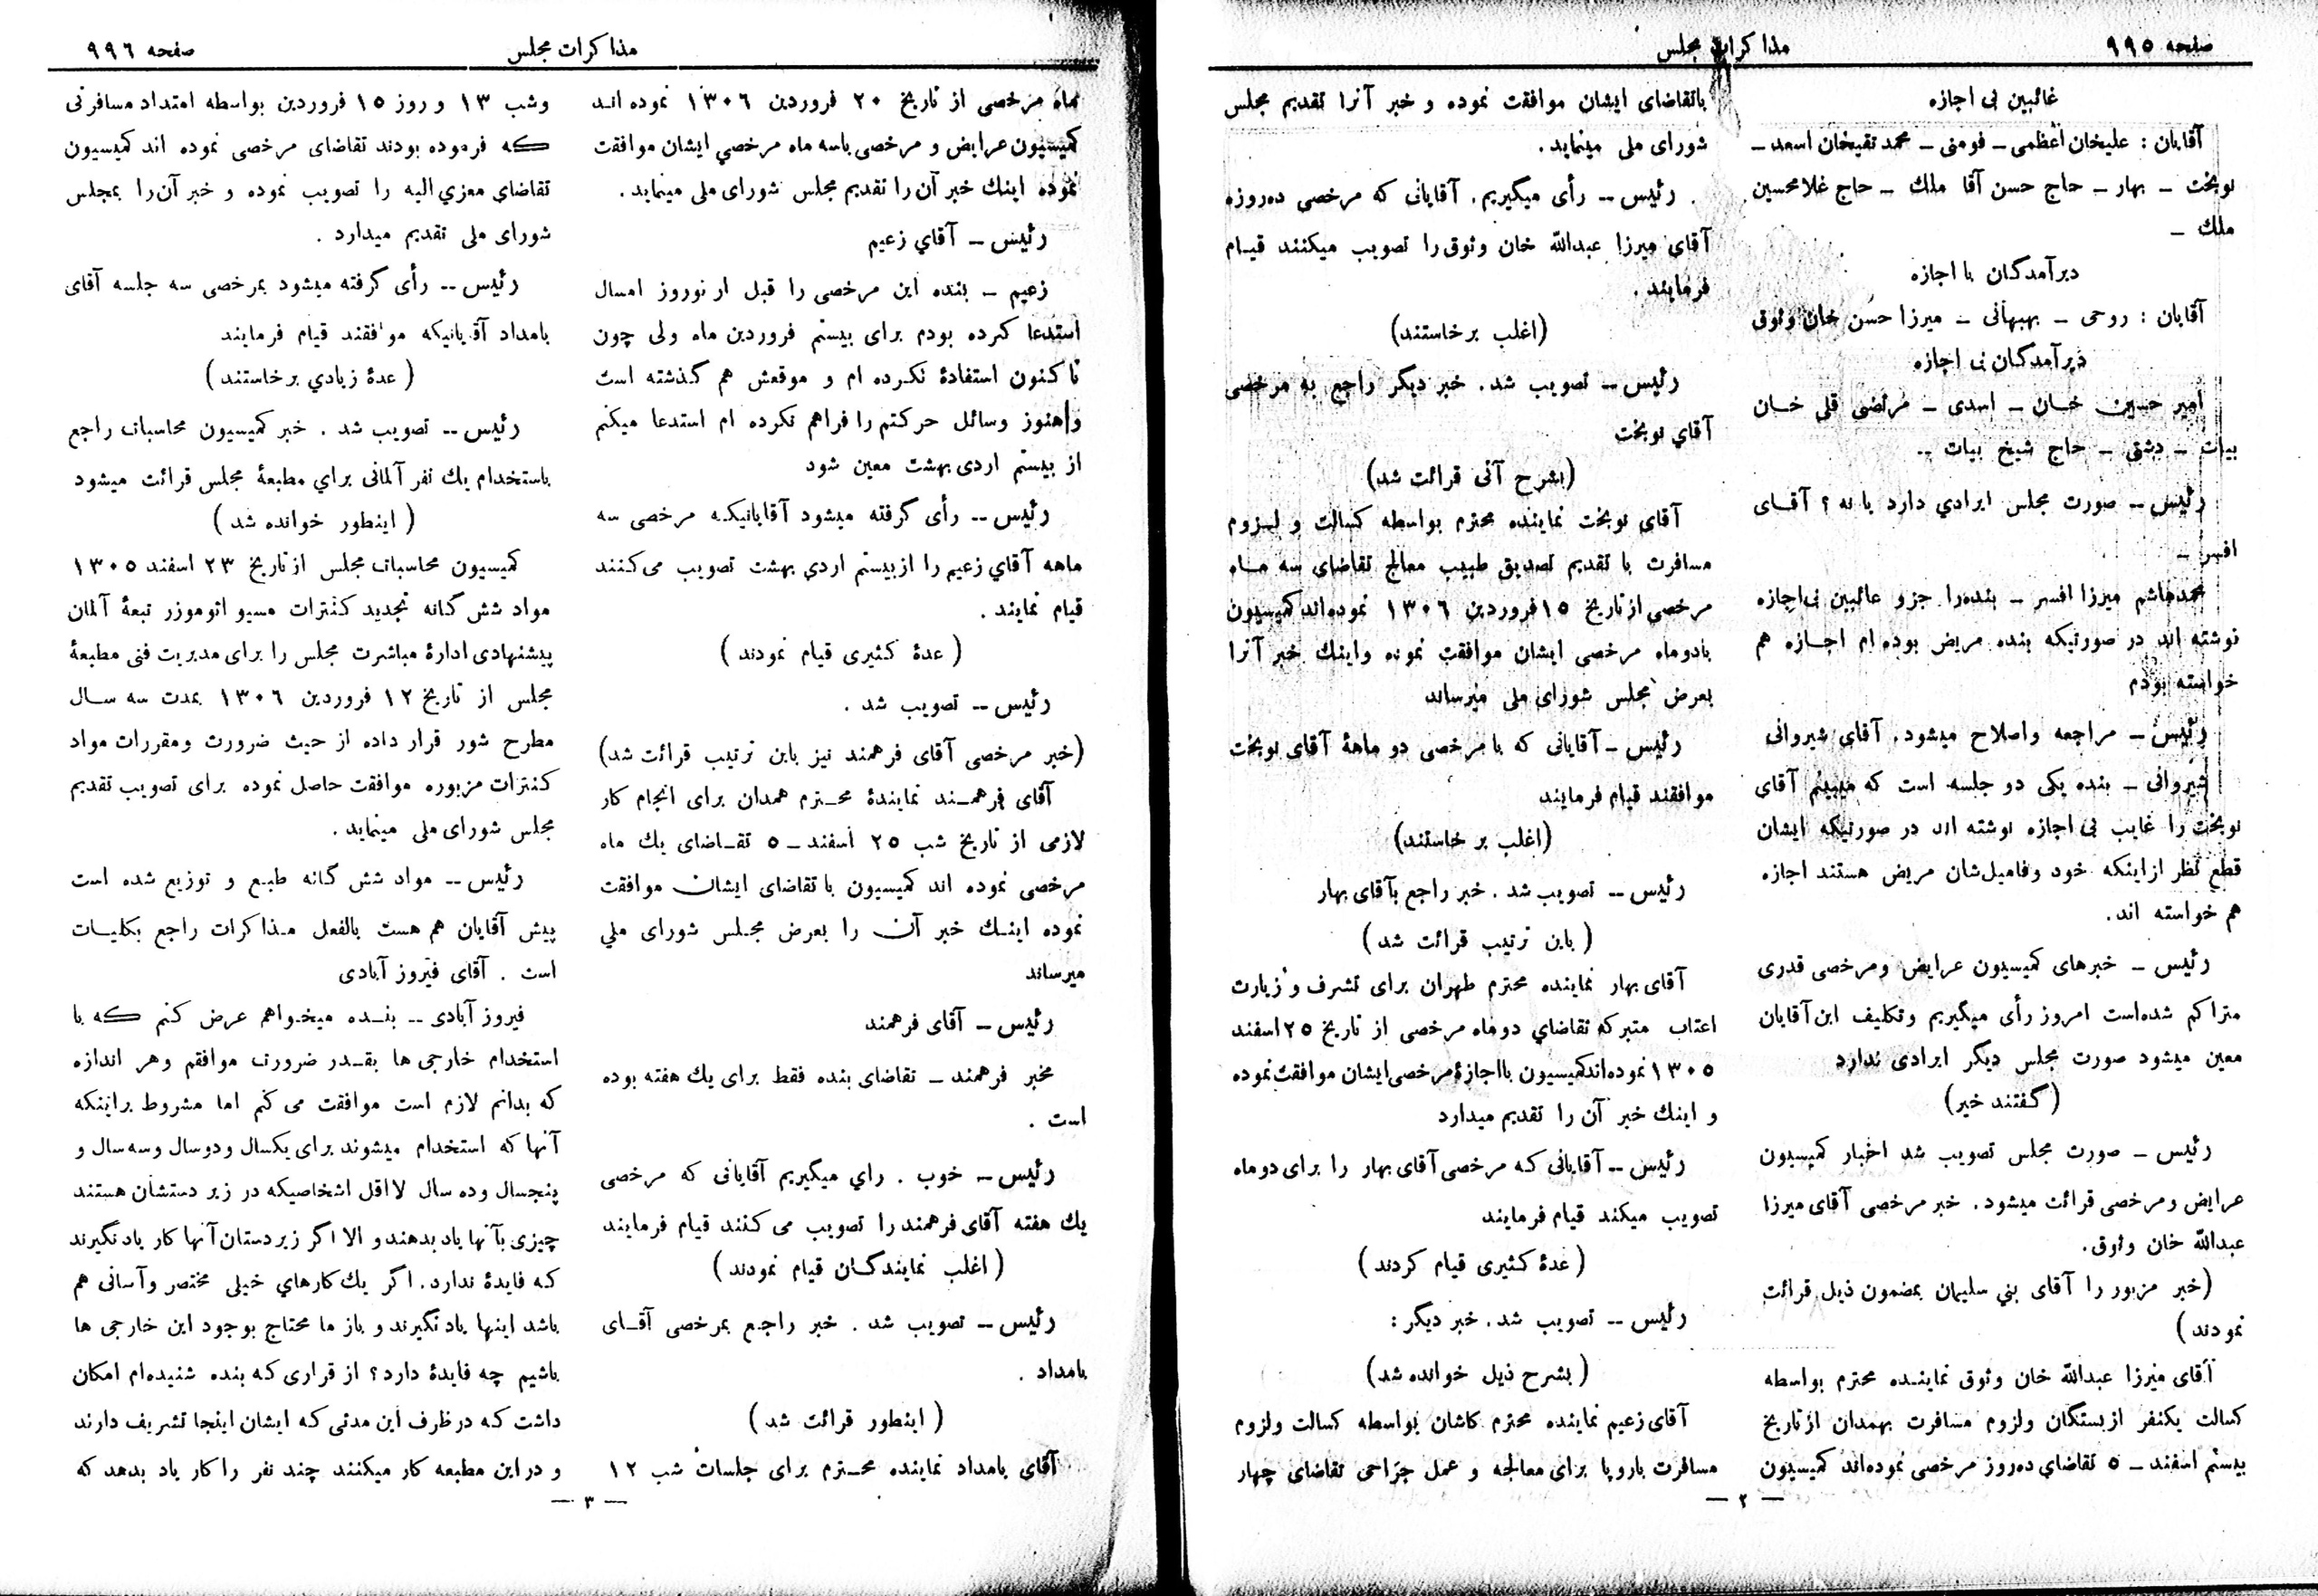 صفحه ۹۹۵
مذاکرات مجلس
غائبین بی اجازه
آقایان : علیخان اعظمی ـ فومنی ـ محمد تقیخان اسعد ـ
نوبخت ـ بهار ـ حاج حسن آقا ملك ـ حاج غلامحسین
ملك ـ
دیرآمدگان با اجازه
آقایان : روحی ـ بهبهانی ـ میرزا حسن خان وثوق
دیرآمدگان بی اجازه
امیر حسین خان ـ اسدی ـ مرتضی قلی خان
بیات ـ دشتی ـ حاج شیخ بیات ..
رئیس ـ صورت مجلس ایرادي دارد یا نه ؟ آقای
افسر ـ
محمدهاشم میرزا افسر ـ بنده‌را جزو غائبین بی‌اجازه
نوشته اند در صورتیکه بنده مریض بوده ام اجازه هم
خواسته بودم
رئیس ـ مراجعه واصلاح میشود. آقای شیروانی
شیروانی ـ بنده یکی دو جلسه است که میبینم آقای
نوبخت را غایب بی اجازه نوشته اند در صورتیکه ایشان
قطع نظر ازاینکه خود وفامیل‌شان مریض هستند اجازه
هم خواسته اند.
رئیس ـ خبرهای کمیسیون عرایض ومرخصی قدری
متراکم شده‌است امروز رأی میگیریم وتکلیف این آقایان
معین میشود صورت مجلس دیگر ایرادی ندارد
(گفتند خیر)
رئیس ـ صورت مجلس تصویب شد اخبار کمیسیون
عرایض ومرخصی قرائت میشود. خبر مرخصی آقای میرزا
عبدالله خان وثوق.
(خبر مزبور را آقای بني سلیمان بمضمون ذیل قرائت
نمودند)
آقای میرزا عبدالله خان وثوق نماینده محترم بواسطه
کسالت یکنفر ازبستگان ولزوم مسافرت بهمدان ازتاریخ
بیستم اسفند ـ ۵ تقاضاي ده‌روز مرخصی نموده‌اند کمیسیون
باتقاضای ایشان موافقت نموده و خبر آنرا تقدیم مجلس
شورای ملی مینماید.
رئیس -- رأی میگیریم. آقایانی که مرخصی ده‌روزه
آقای میرزا عبدالله خان وثوق‌را تصویب میکنند قیام
فرمایند.
(اغلب برخاستند)
رئیس -- تصویب شد. خبر دیگر راجع به مرخصی
آقاي نوبخت
(بشرح آتی قرائت شد)
آقای نوبخت نماینده محترم بواسطه کسالت و لزوم
مسافرت با تقدیم تصدیق طبیب معالج تقاضای سه ماه
مرخصی از تاریخ ۱۵ فروردین ۱۳۰۶ نموده‌اند کمیسیون
بادوماه مرخصی ایشان موافقت نموده واینك خبر آنرا
بعرض مجلس شورای ملی میرساند
رئیس ـ آقایانی که با مرخصی دو ماههٔ آقای نوبخت
موافقند قیام فرمایند
(اغلب بر خاستند)
رئیس -- تصویب شد . خبر راجع بآقای بهار
( باین ترتیب قرائت شد )
آقای بهار نماینده محترم طهران برای تشرف و زیارت
اعتاب متبرکه تقاضاي دوماه مرخصی از تاریخ ۲۵اسفند
۱۳۰۵ نموده‌اند کمیسیون بااجازهٔ مرخصی ایشان موافقت نموده
و اینك خبر آن را تقدیم میدارد
رئیس -- آقایانی که مرخصی آقای بهار را برای دوماه
تصویب میکند قیام فرمایند
( عدهٔ کثیری قیام کردند )
رئیس -- تصویب شد. خبر دیگر :
( بشرح ذیل خوانده شد )
آقای زعیم نماینده محترم کاشان بواسطه کسالت ولزوم
مسافرت باروپا برای معالجه و عمل جراحی تقاضای چهار
— ۲ —
مذاکرات مجلس
صفحه ۹۹۶
ماه مرخصی از تاریخ ۲۰ فروردین ۱۳۰۶ نموده اند
کمیسیون عرایض و مرخصی باسه ماه مرخصي ایشان موافقت
نموده اینك خبر آن را تقدیم مجلس شورای ملی مینماید.
رئیس ـ آقاي زعیم
زعیم ـ بنده این مرخصی را قبل از نوروز امسال
استدعا کرده بودم برای بیستم فروردین ماه ولی چون
تا کنون استفادهٔ نکرده ام و موقعش هم گذشته است
واهنوز وسائل حرکتم را فراهم نکرده ام استدعا میکنم
از بیستم اردی بهشت معین شود
رئیس -- رأی گرفته میشود آقایانیکه مرخصی سه
ماهه آقاي زعیم را ازبیستم اردي بهشت تصویب می‌کنند
قیام نمایند .
( عدهٔ کثیری قیام نمودند )
رئیس -- تصویب شد .
(خبر مرخصی آقای فرهمند نیز باین ترتیب قرائت شد)
آقای فرهمند نمایندهٔ محترم همدان برای انجام کار
لازمی از تاریخ شب ۲۵ اسفند ـ ۵ تقاضای یك ماه
مرخصی نموده اند کمیسیون با تقاضای ایشان موافقت
نموده اینك خبر آن را بعرض مجلس شورای ملي
میرساند
رئیس ـ آقای فرهمند
مخبر فرهمند ـ تقاضای بنده فقط برای یك هفته بوده
است .
رئیس ـ خوب . راي میگیریم آقایانی که مرخصی
یك هفته آقای فرهمند را تصویب می کنند قیام فرمایند
( اغلب نمایندگان قیام نمودند )
رئیس ـ تصویب شد . خبر راجع بمرخصی آقای
بامداد .
( اینطور قرائت شد )
آقای بامداد نماینده محترم برای جلسات شب ۱۲
وشب ۱۳ و روز ۱۵ فروردین بواسطه امتداد مسافرتی
که فرموده بودند تقاضای مرخصی نموده اند کمیسیون
تقاضای معزي الیه را تصویب نموده و خبر آن‌را بمجلس
شورای ملی تقدیم میدارد .
رئیس -- رأی گرفته میشود بمرخصی سه جلسه آقای
بامداد آقایانیکه موافقند قیام فرمایند
( عدهٔ زیادي برخاستند )
رئیس -- تصویب شد . خبر کمیسیون محاسبات راجع
باستخدام یك نفر آلمانی براي مطبعهٔ مجلس قرائت میشود
( اینطور خوانده شد )
کمیسیون محاسبات مجلس از تاریخ ۲۳ اسفند ۱۳۰۵
مواد شش گانه تجدید کنترات مسیو اتوموزر تبعهٔ آلمان
پیشنهادی ادارهٔ مباشرت مجلس را برای مدیریت فنی مطبعهٔ
مجلس از تاریخ ۱۲ فروردین ۱۳۰۶ بمدت سه سال
مطرح شور قرار داده از حیث ضرورت ومقررات مواد
کنترات مزبوره موافقت حاصل نموده برای تصویب تقدیم
مجلس شورای ملی مینماید.
رئیس -- مواد شش گانه طبع و توزیع شده است
پیش آقایان هم هست بالفعل مذاکرات راجع بکلیات
است . آقای فیروز آبادی
فیروز آبادی -- بنده میخواهم عرض کنم که با
استخدام خارجی ها بقدر ضرورت موافقم وهر اندازه
که بدانم لازم است موافقت می کنم اما مشروط براینکه
آنها که استخدام میشوند برای یکسال ودوسال وسه سال و
پنجسال وده سال لااقل اشخاصیکه در زیر دستشان هستند
چیزی بآنها یاد بدهند و الا اگر زیردستان آنها کار یاد نگیرند
که فایدهٔ ندارد. اگر یك کارهاي خیلی مختصر وآسانی هم
باشد اینها یاد نگیرند و باز ما محتاج بوجود این خارجی ها
باشیم چه فایدهٔ دارد؟ از قراری که بنده شنیده‌ام امکان
داشت که در ظرف این مدتی که ایشان اینجا تشریف دارند
و در این مطبعه کار میکنند چند نفر را کار یاد بدهد که
— ۳ —